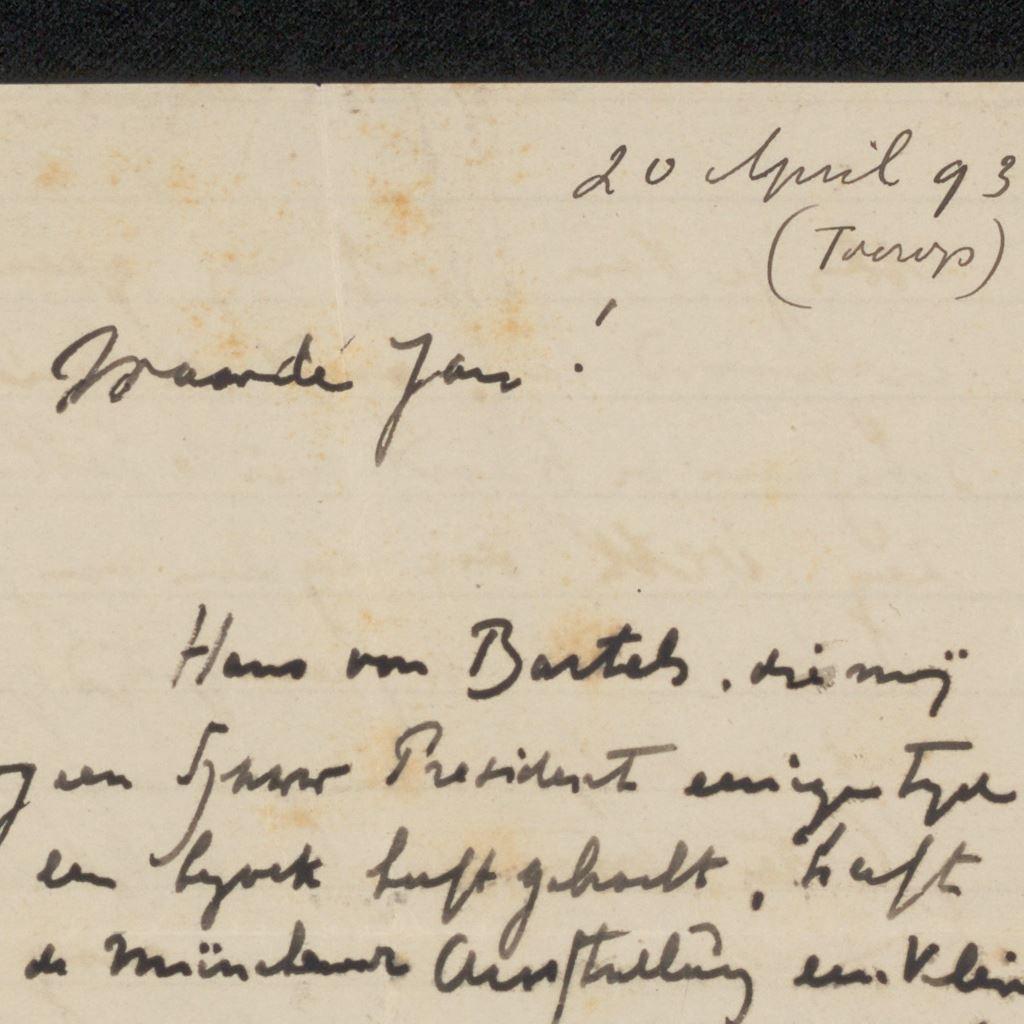 20 April 93
(Toorop)
Waarde Jan!
Hans von Bartels, die mij
een President eenigen tijd
een bezoek heeft gebracht, heeft
de Münchener Ausstellung een klein